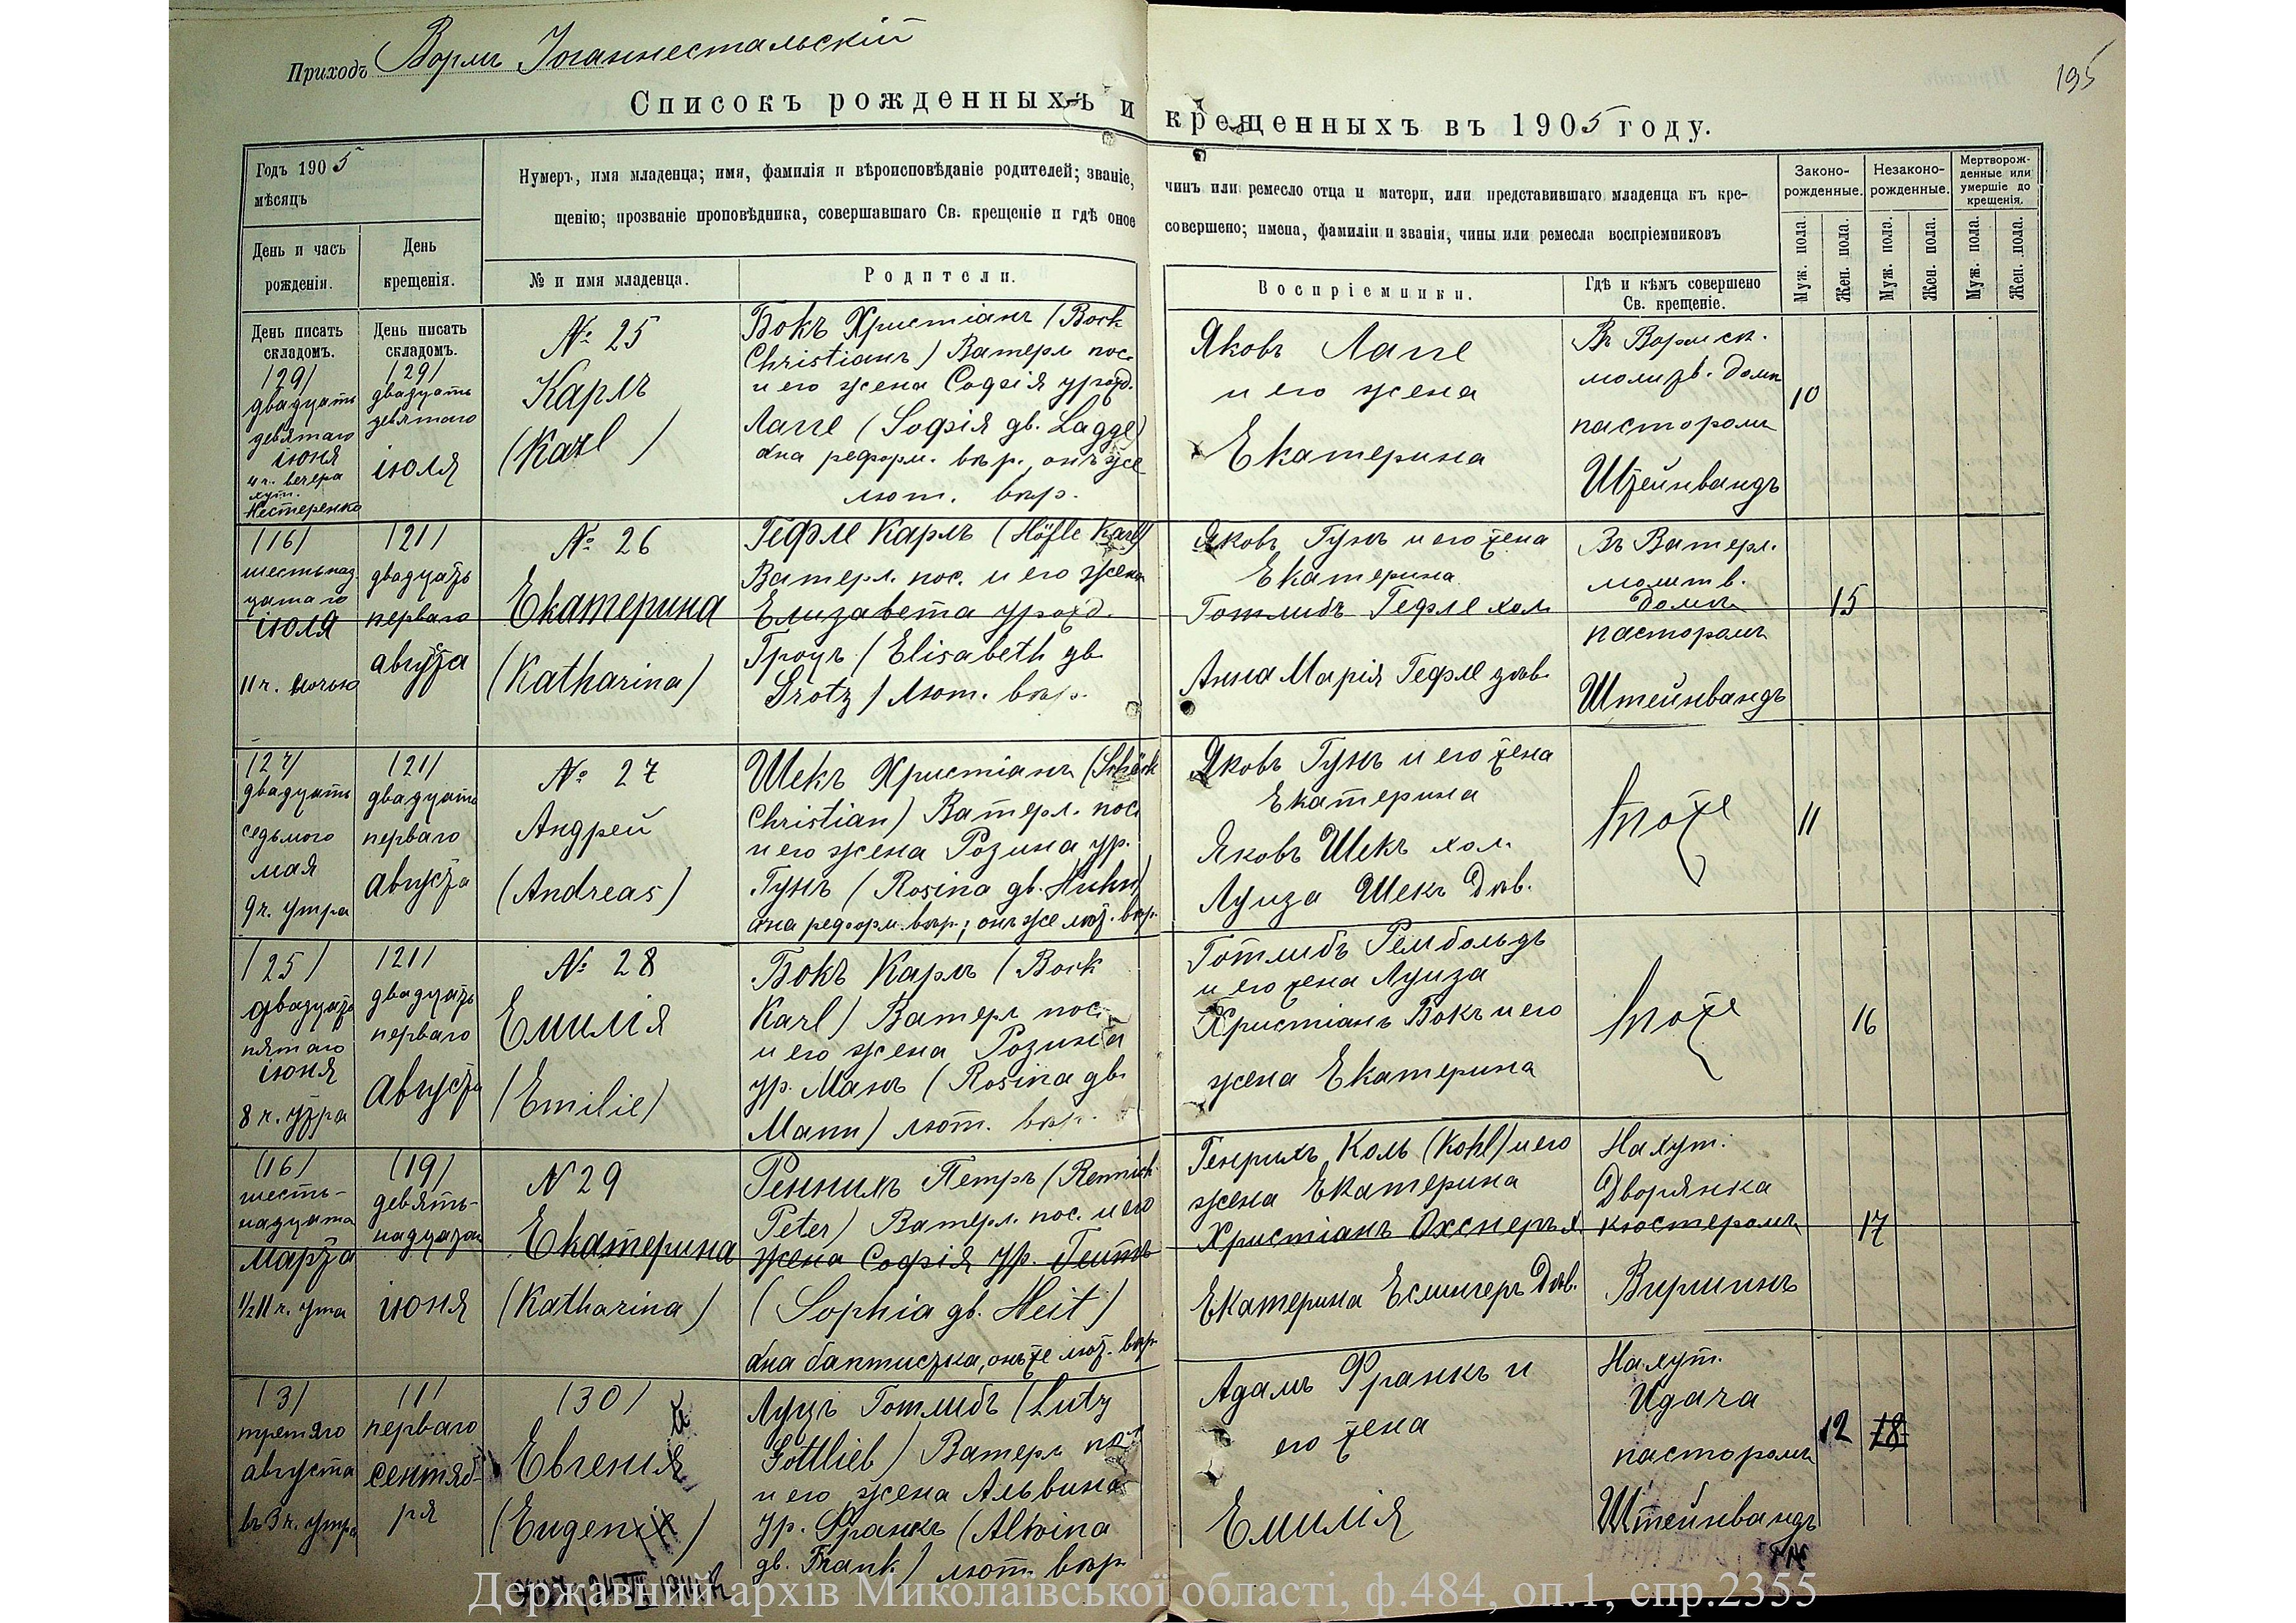 Приходъ Вормс Іоганнестальскій
195
Списокъ рожденныхъ и крещенныхъ въ 1905 году.
Годъ 1905
мѣсяцъ
День и часъ
рожденія.
День
крещенія.
Нумеръ, имя младенца; имя, фамилія и вѣроисповѣданіе родителей; званіе, чинъ или ремесло отца и матери, или представившаго младенца къ кре-
щенію; прозваніе проповѣдника, совершавшаго Св. крещеніе и гдѣ оное совершено; имена, фамиліи и званія, чины или ремесла воспріемниковъ
№ и имя младенца.
Родители.
Воспріемники.
Гдѣ и кѣмъ совершено
Св. крещеніе.
Законо-
рожденные.
Незаконо-
рожденные.
Мертворож-
денные или
умершіе до
крещенія.
Муж. пола.
Жен. пола.
Муж. пола.
Жен. пола.
Муж. пола.
Жен. пола.
День писать
складомъ.
День писать
складомъ.
/29/
двадцать
девятаго
іюня
4 ч. вечера
хут.
Нестеренко
/29/
двадцать
девятаго
іюля
№ 25
Карлъ
(Karl)
Бокъ Христіанъ (Bock
Christianъ) Ватерл. пос.
и его жена Софія урожд.
Лагге (Sофія gb. Lagge)
она реформ. вѣр., онъ же
лют. вѣр.
Яковъ Лагге
и его жена
Екатерина
Въ Вормск.
молитв. домѣ
пасторомъ
Штейнвандъ
10
/16/
шестьнад
цатаго
іюля
11 ч. ночью
/21/
двадцать
перваго
августа
№ 26
Екатерина
(Katharina)
Гефле Карлъ (Höfle Karl)
Ватерл. пос. и его жена
Елизавета урожд.
Гроцъ (Elisabeth gb.
Grotz) лют. вѣр.
Яковъ Гунъ и его жена
Екатерина
Готлибъ Гефле хол.
Анна Марія Гефле дѣв.
Въ Ватерл.
молитв.
домѣ
пасторомъ
Штейнвандъ
15
/27/
двадцать
седьмого
мая
9 ч. утра
/21/
двадцать
перваго
августа
№ 27
Андрей
(Andreas)
Шекъ Христіанъ (Schöck
Christian) Ватерл. пос.
и его жена Розина ур.
Гунъ (Rosina gb. Huhn)
она реформ. вѣр.; онъ же лют. вѣр.
Яковъ Гунъ и его жена
Екатерина
Яковъ Шекъ хол.
Луиза Шекъ дѣв.
тоже
11
/25/
двадцать
пятаго
іюня
8 ч. утра
/21/
двадцать
перваго
августа
№ 28
Емилія
(Emilie)
Бокъ Карлъ (Bock
Karl) Ватерл. пос.
и его жена Розина
ур. Манъ (Rosina gb.
Mann) лют. вѣр.
Готлибъ Рембольдъ
и его жена Луиза
Христіанъ Бокъ и его
жена Екатерина
тоже
16
/16/
шесть-
надцата
марта
1/2 11 ч. ута
/19/
девять-
надцатаго
іюня
N 29
Екатерина
(Katharina)
Реннихъ Петръ (Rennich
Peter) Ватерл. пос. и его
жена Софія ур. Гейтъ
(Sophia gb. Heit)
она баптистка, онъ же лют. вѣр.
Генрихъ Коль (Kohl) и его
жена Екатерина
Христіанъ Охснеръ х.
Екатерина Еслингеръ дѣв.
На хут.
Дворянка
кюстеромъ
17
/3/
третяго
августа
въ 3 ч. утра
/1/
перваго
сентяб-
ря
/30/
Евгеній
(Eugen)
Луцъ Готлибъ (Lutz
Gottlieb) Ватерл. пос.
и его жена Альвина
ур. Франкъ (Alwina
gb. Frank) лют. вѣр.
Адамъ Франкъ и
его жена
Емилія
На хут.
Идача
пасторомъ
Штейнвандъ
12 18
Державний архів Миколаївської області, ф.484, оп.1, спр.2355